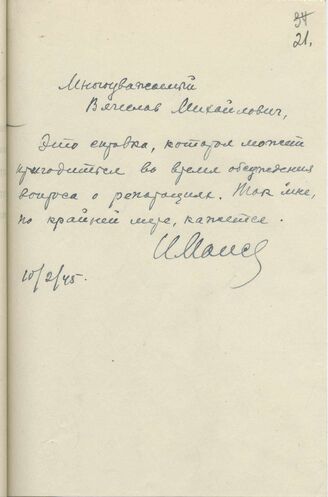 34
21.
Многоуважаемый
Вячеслав Михайлович,
Это справка, которая может
пригодиться во время обсуждения
вопроса о репарациях. Так мне,
по крайней мере, кажется.
И Майск
10/2/45.